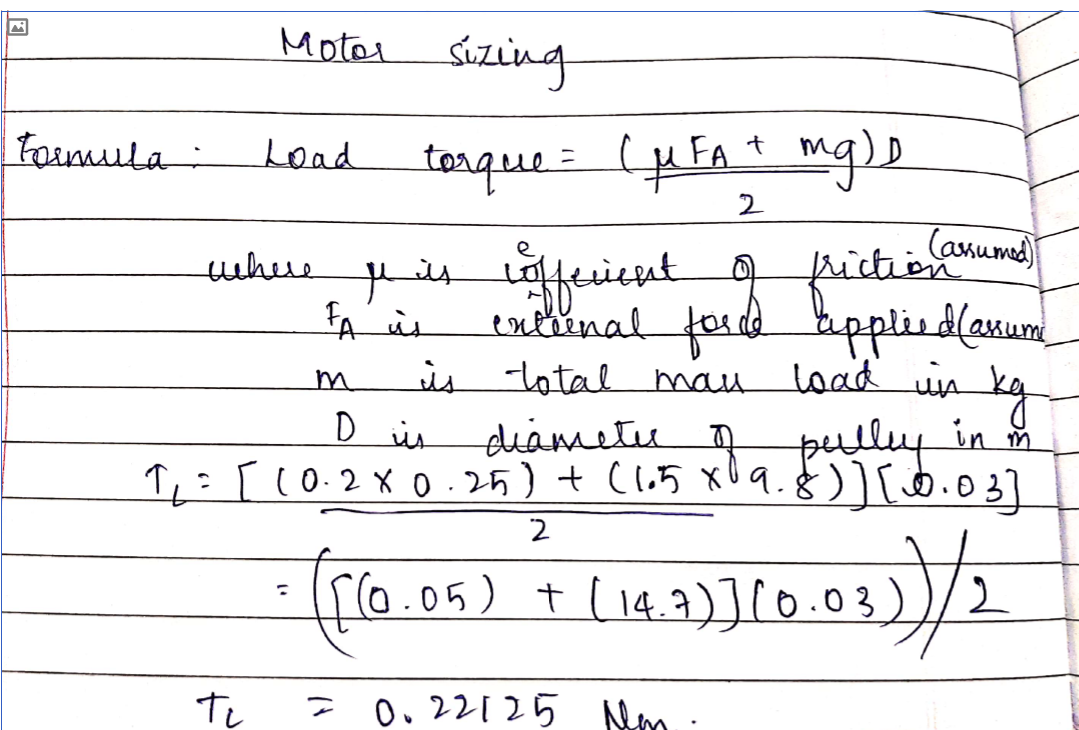 Motor sizing
Formula : Load torque = (μ FA + mg) D
2
where μ is coefficient of friction (assumed)
FA is external force applied (assum
m is total mass load in kg
D is diameter of pulley in m
TL = [(0.2 x 0.25) + (1.5 x 9.8)] [0.03]
2
= ([(0.05) + (14.7)] (0.03))/2
TL = 0.22125 Nm.